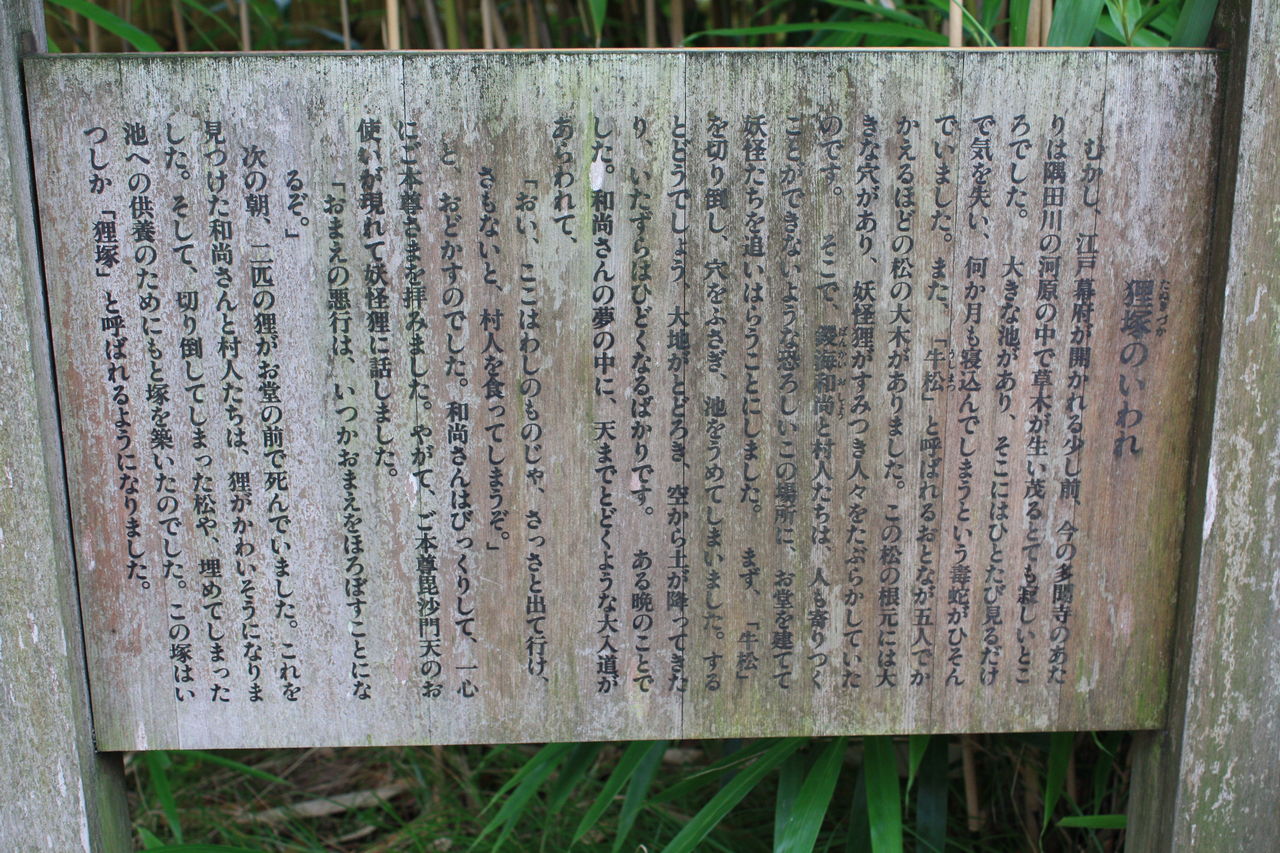 狸塚のいわれ
たぬきづか
むかし、江戸幕府が開かれる少し前、今の多聞寺のあた
りは隅田川の河原の中で草木が生い茂るとても寂しいとこ
ろでした。 大きな池があり、そこにはひとたび見るだけ
で気を失い、何か月も寝込んでしまうという毒蛇がひそん
でいました。また、「牛松」と呼ばれるおとなが五人でか
うしまつ
かえるほどの松の大木がありました。この松の根元には大
きな穴があり、妖怪狸がすみつき人々をたぶらかしていた
のです。 そこで、鑁海和尚と村人たちは、人も寄りつく
ばんかい おしょう
ことができないような恐ろしいこの場所に、お堂を建てて
妖怪たちを追いはらうことにしました。 まず、「牛松」
を切り倒し、穴をふさぎ、池をうめてしまいました。する
とどうでしょう、大地がとどろき、空から土が降ってきた
り、いたずらはひどくなるばかりです。 ある晩のことで
した。和尚さんの夢の中に、天までとどくような大入道が
あらわれて、
「おい、ここはわしのものじゃ、さっさと出て行け、
さもないと、村人を食ってしまうぞ。」
と、おどかすのでした。和尚さんはびっくりして、一心
にご本尊さまを拝みました。やがて、ご本尊毘沙門天のお
使いが現れて妖怪狸に話しました。
「おまえの悪行は、いつかおまえをほろぼすことにな
るぞ。」
次の朝、二匹の狸がお堂の前で死んでいました。これを
見つけた和尚さんと村人たちは、狸がかわいそうになりま
した。そして、切り倒してしまった松や、埋めてしまった
池への供養のためにもと塚を築いたのでした。この塚はい
つしか「狸塚」と呼ばれるようになりました。